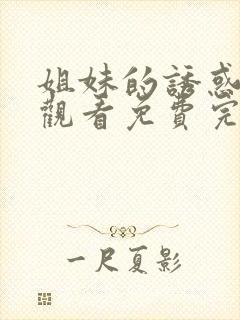 姐妹的誘惑
觀看免費完
一尺夏影